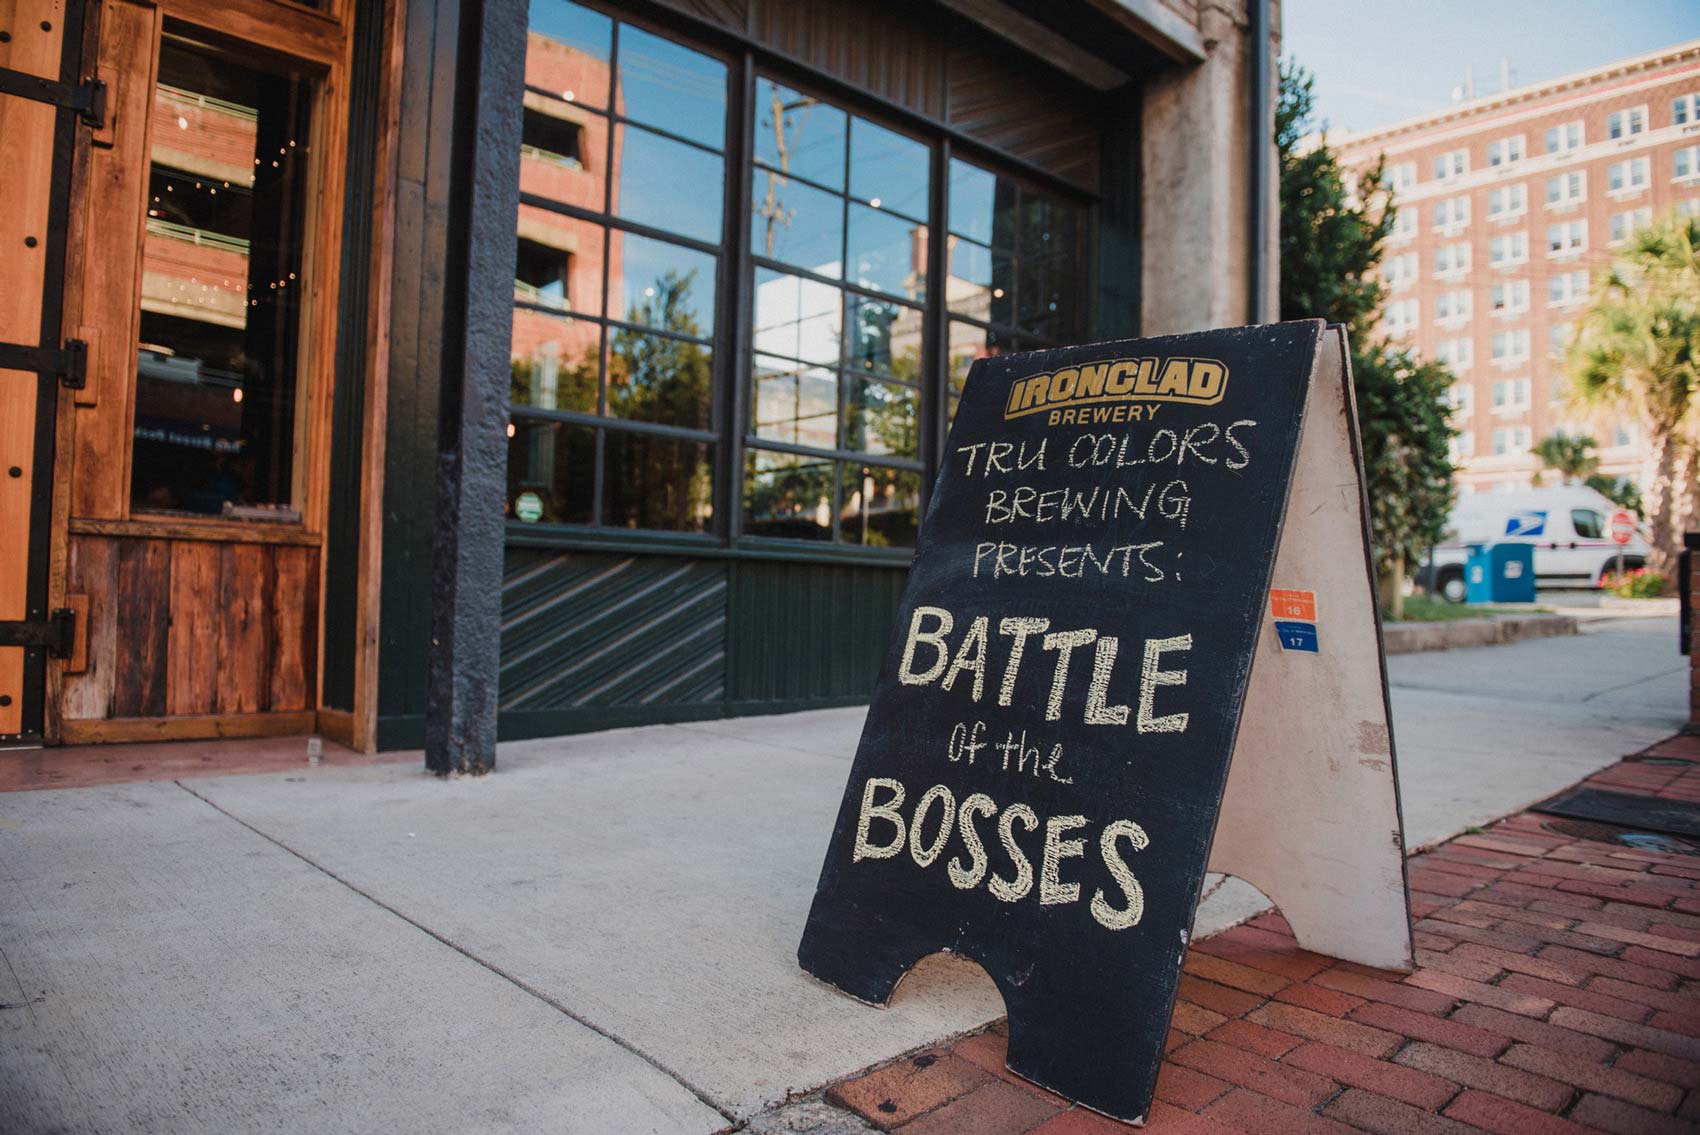 IRONCLAD
BREWERY
TRU COLORS
BREWING
PRESENTS:
BATTLE
of the
BOSSES
16
17